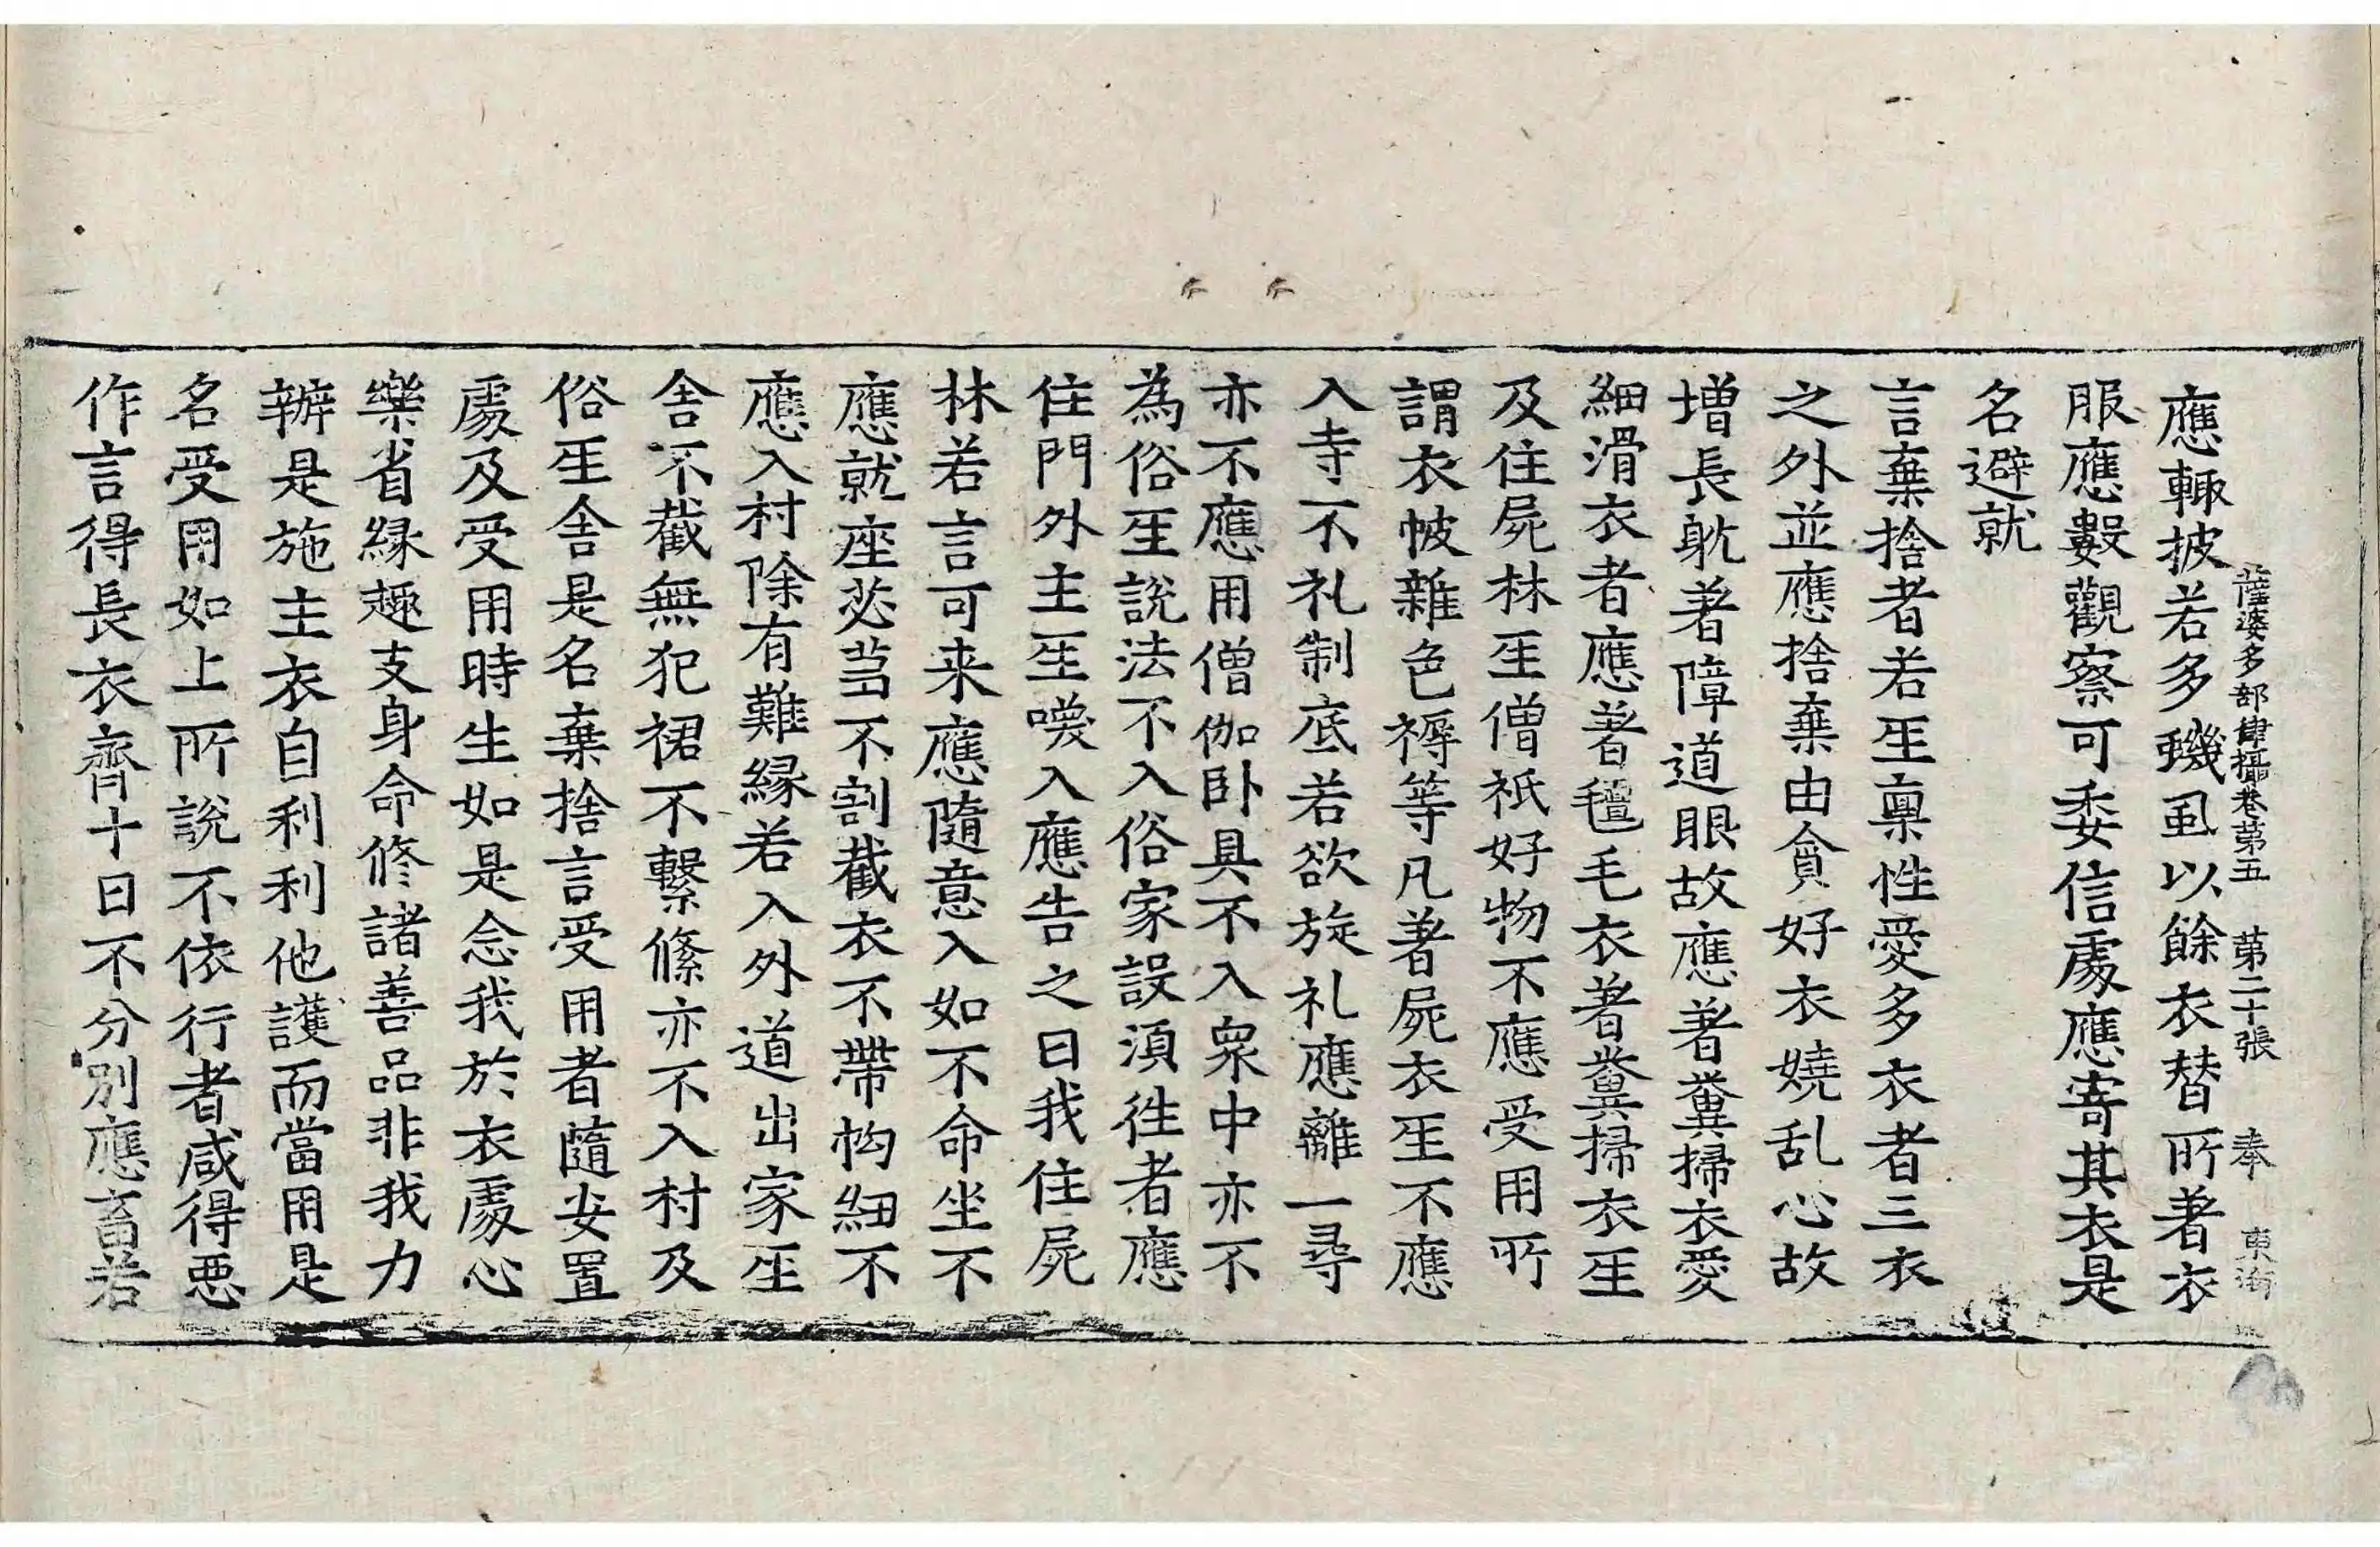 薩婆多部律攝卷第五 第二十張 奉 東
應輙披若多蟣虱以餘衣替所著衣
服應數觀察可委信處應寄其衣是
名避就
言棄捨者若𤯔禀性愛多衣者三衣
之外並應捨棄由貪好衣嬈乱心故
增長躭著障道眼故應著糞掃衣愛
細滑衣者應著氈毛衣著糞掃衣𤯔
及住屍林𤯔僧祇好物不應受用所
謂衣帔雜色褥等凡著屍衣𤯔不應
入寺不礼制底若欲旋礼應離一尋
亦不應用僧伽卧具不入衆中亦不
為俗𤯔說法不入俗家設湏徃者應
住門外主𤯔喚入應告之曰我住屍
林若言可来應隨意入如不命坐不
應就座苾芻不割截衣不帶紐不
應入村除有難緣若入外道出家𤯔
舍不截無犯裙不繫絛亦不入村及
俗𤯔舍是名棄捨言受用者隨安置
處及受用時生如是念我於衣處心
樂省縁趣支身命修諸善品非我力
辦是施主衣自利利他護而當用是
名受用如上所說不依行者咸得惡
作言得長衣齊十日不分別應畜若